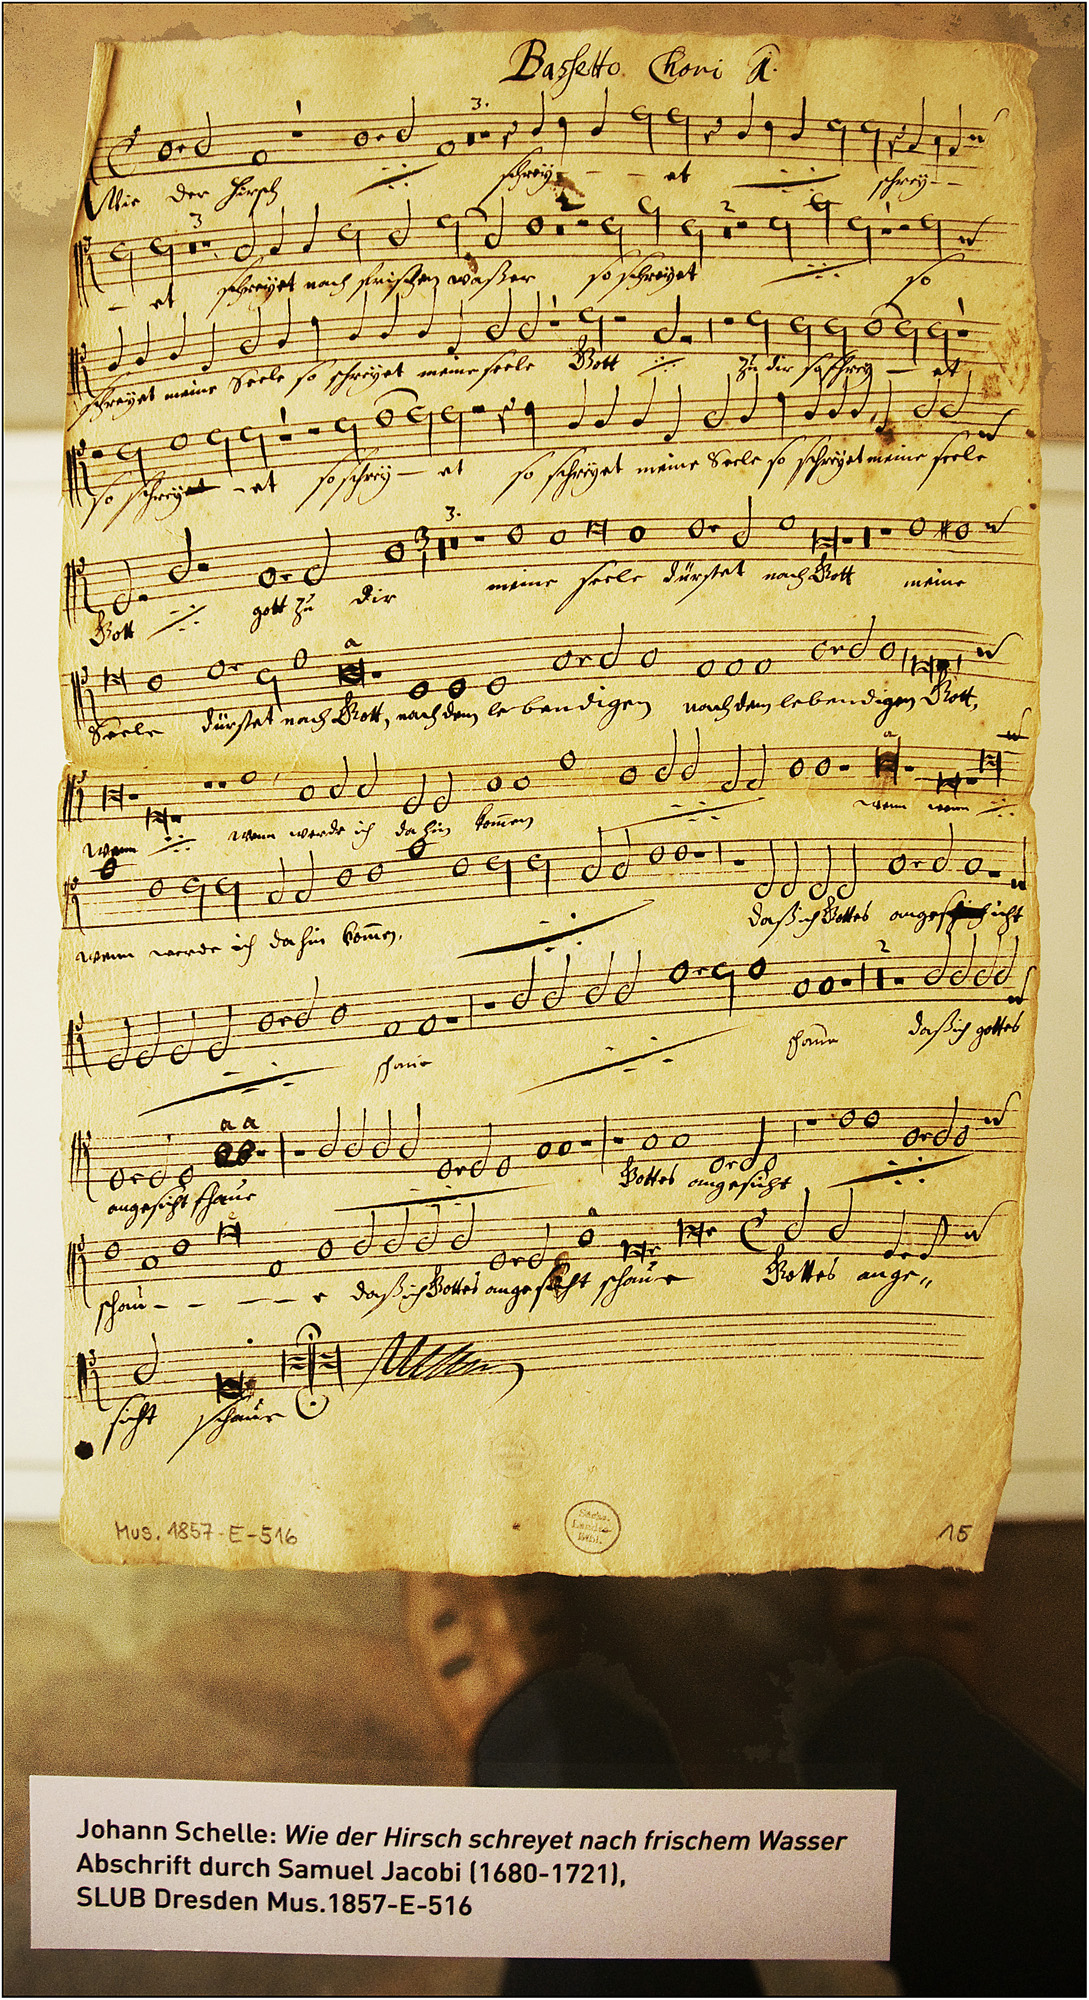 Bassetto. Chori
3.
Wie der Hirsch schrey - - - et schrey - -
3 2
- et schreyet nach frischen waßer so schreyet so
schreyet meine Seele so schreyet meine seele Gott zu dir so schrey - et
so schreyet - et so schrey - et so schreyet meine Seele so schreyet meine seele
3 3.
Gott gott zu dir meine seele dürstet nach Gott meine
a
Seele dürstet nach Gott, nach dem lebendigen nach dem lebendigen Gott,
a
wenn wenn werde ich dahin kom̄en wenn wenn
wenn werde ich dahin kom̄en. daß ich Gottes angesicht
2
schaue schaue daß ich gottes
a a
angesicht schaue Gottes angesicht
schau - - - - e daß ich Gottes angesicht schaue Gottes ange„
sicht schaue
Mus. 1857-E-516
Sächs.
Landes-
Bibl.
15
Johann Schelle: Wie der Hirsch schreyet nach frischem Wasser
Abschrift durch Samuel Jacobi (1680-1721),
SLUB Dresden Mus.1857-E-516